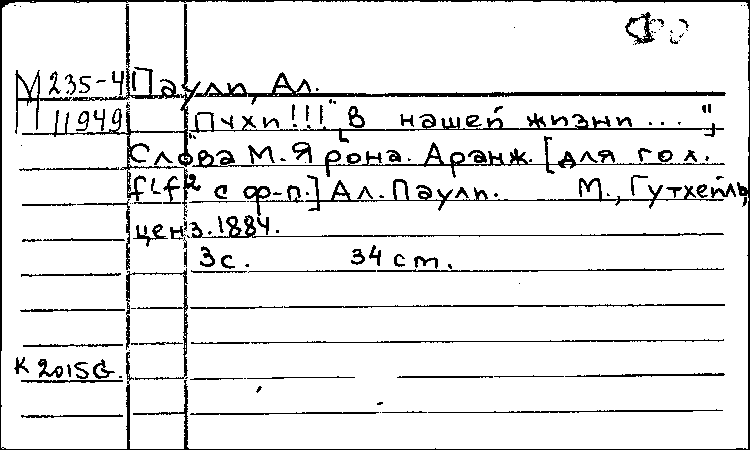 М 235-4 Паули, Ал.
11949 "Пчхи!!!" ["В нашей жизни..."]
Слова М. Ярона. Аранж. [для гол.
с ф-п.] Ал. Паули. М., Гутхейль,
ценз. 1884.
3 с. 34 cm.
К 2015G.